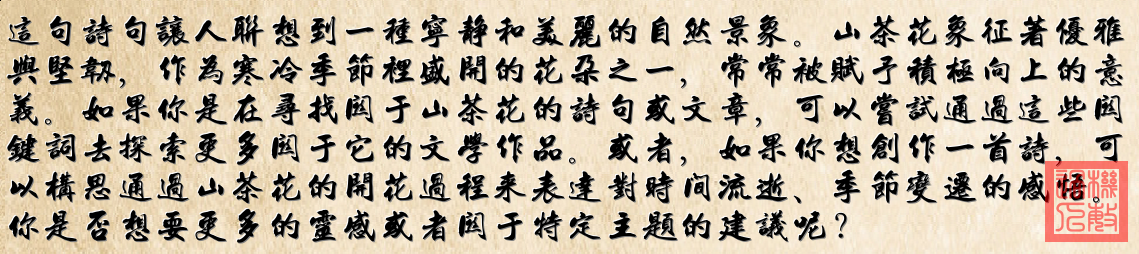 這句詩句讓人聯想到一種寧静和美麗的自然景象。山茶花象征著優雅
與堅韌，作為寒冷季節裡盛開的花朵之一，常常被賦予積極向上的意
義。如果你是在尋找関于山茶花的詩句或文章，可以嘗試通過這些関
鍵詞去探索更多関于它的文學作品。或者，如果你想創作一首詩，可
以構思通過山茶花的開花過程來表達對時间流逝、季節變遷的感悟。
你是否想要更多的靈感或者関于特定主題的建議呢？